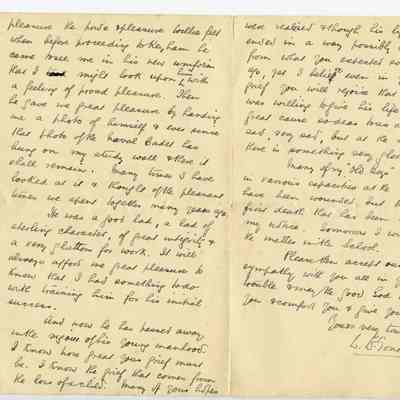 pleasure the pride & pleasure both felt
when before proceeding to Keyham he
came to see me in his new uniform
that I might look upon him with
a feeling of proud pleasure. Then
he gave me great pleasure by handing
me a photo of himself & ever since
that photo of the Naval Cadet has
hung on my study wall & there it
shall remain. Many times I have
looked at it & thought of the pleasant
times we spent together many years ago.
He was a good lad, a lad of
sterling character, of great integrity &
a very glutton for work. It will
always afford me great pleasure to
know that I had something to do
with training him for his initial
success.
And now he has passed away
in the vigour of his young manhood.
I know how great your grief must
be. I know the grief that comes from
the loss of a child. Many of your hopes
were realised & though his life
ended in a way possibly
from what you expected
ago, yet I believe even in
grief you will rejoice that
was willing to give his life
great cause
sad, very sad, but at the
there is something very
Many of my "Old Boys"
in various capacities at the
have been wounded, but
first death that has been
my notice. Tomorrow I
the matter in the School.
Please then accept our
sympathy with you all in
trouble & may the good God
you & comfort you & give you
Yours very